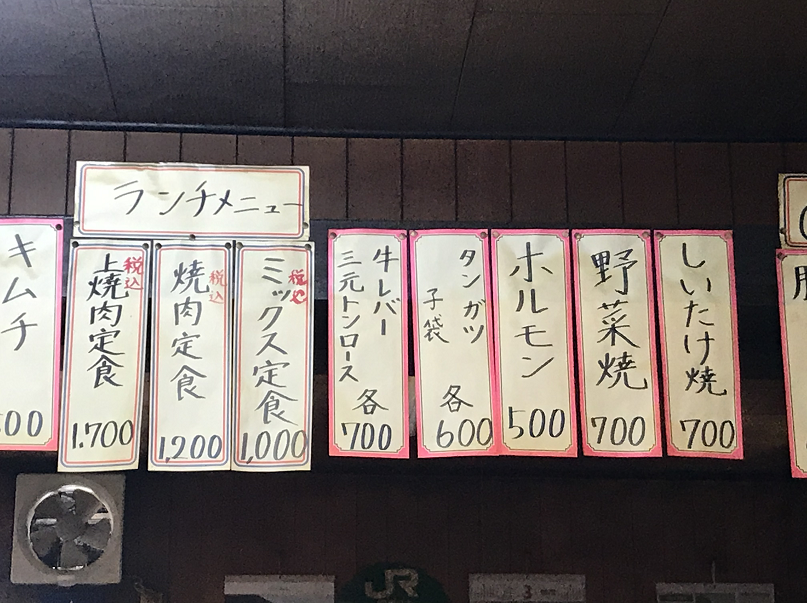 ランチメニュー
しいたけ焼
700
野菜焼
700
ホルモン
500
タンガツ
子袋
各
600
牛レバー
三元トンロース
各
700
ミックス定食
税込
1,000
焼肉定食
税込
1,200
上焼肉定食
税込
1.700
キムチ
00
JR
3